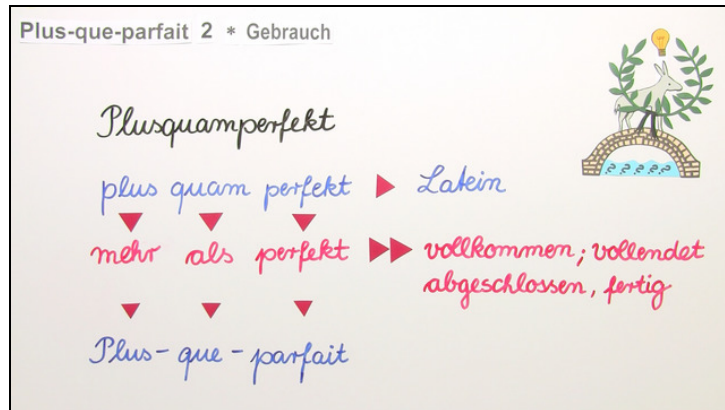 Plus-que-parfait 2 * Gebrauch
Plusquamperfekt
plus quam perfekt ▶ Latein
mehr als perfekt ▶▶ vollkommen; vollendet
abgeschlossen, fertig
Plus-que-parfait
? ? ? ? ?